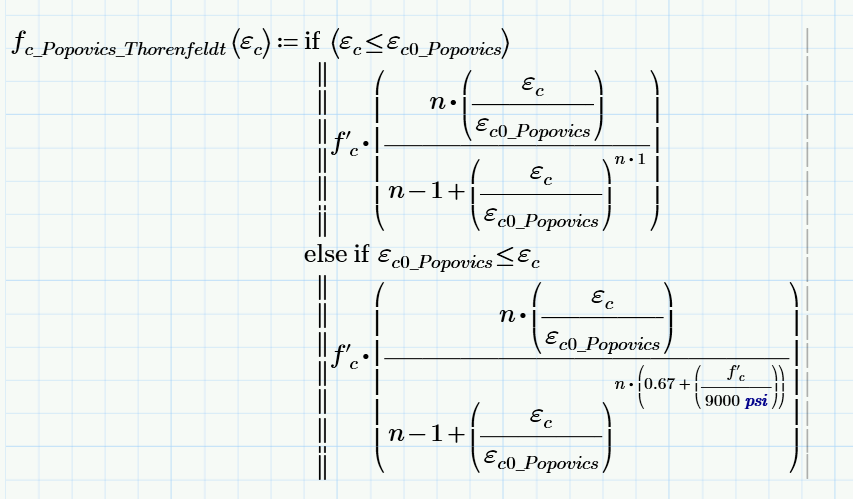 f_{c_Popovics_Thorenfeldt}(ε_c) := if (ε_c ≤ ε_{c0_Popovics})
f'_c · ( (n · (ε_c / ε_{c0_Popovics})) / (n − 1 + (ε_c / ε_{c0_Popovics})^{n · 1}) )
else if ε_{c0_Popovics} ≤ ε_c
f'_c · ( (n · (ε_c / ε_{c0_Popovics})) / (n − 1 + (ε_c / ε_{c0_Popovics})^{n · (0.67 + (f'_c / 9000 psi))}) )